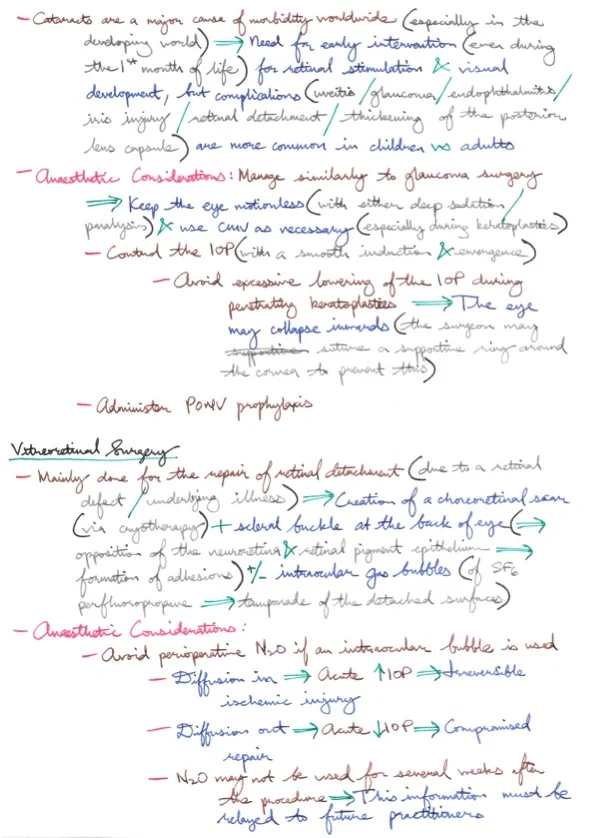 - Cataracts are a major cause of morbidity worldwide (especially in the
developing world) ⇒ Need for early intervention (even during
the 1st month of life) for retinal stimulation & visual
development, but complications (uveitis/glaucoma/endophthalmitis/
iris injury/retinal detachment/thickening of the posterior
lens capsule) are more common in children vs adults
- Anaesthetic Considerations: Manage similarly to glaucoma surgery
⇒ Keep the eye motionless (with either deep sedation/
paralysis) & use CMV as necessary (especially during keratoplasties)
- Control the IOP (with a smooth induction & emergence)
- Avoid excessive lowering of the IOP during
penetrating keratoplasties ⇒ The eye
may collapse inwards (the surgeon may
suture a supportive ring around
the corner to prevent this)
- Administer PONV prophylaxis
Vitreoretinal Surgery
- Mainly done for the repair of retinal detachment (due to a retinal
defect/underlying illness) ⇒ Creation of a choreoretinal scar
(via cryotherapy) + scleral buckle at the back of eye (⇒
opposition of the neuroretina & retinal pigment epithelium ⇒
formation of adhesions) +/- intraocular gas bubbles (of SF6
perfluoropropane ⇒ tamponade of the detached surfaces)
- Anaesthetic Considerations:
- Avoid perioperative N2O if an intraocular bubble is used
- Diffusion in ⇒ Acute ↑IOP ⇒ Irreversible
ischemic injury
- Diffusion out ⇒ Acute ↓IOP ⇒ Compromised
repair
- N2O may not be used for several weeks after
the procedure ⇒ This information must be
relayed to future practitioners